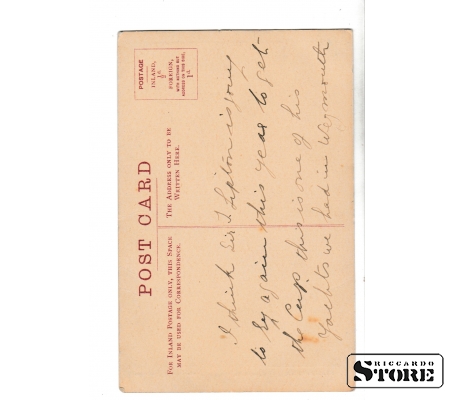 POST CARD
FOR INLAND POSTAGE ONLY, THIS SPACE
MAY BE USED FOR CORRESPONDENCE.
THE ADDRESS ONLY TO BE
WRITTEN HERE.
POSTAGE
INLAND,
½D
FOREIGN,
1D
I think Sir T Lipton is going
to try again this year to get
the Cup this is one of his
Yachts we had in Weymouth
RICCARDO
STORE